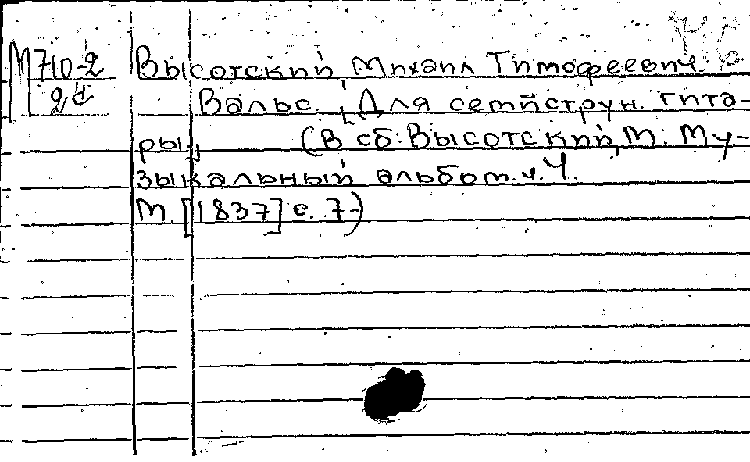 М710-2 Высотский, Михаил Тимофеевич.
2е Вальс. [Для семиструн. гита-
ры] (В сб: Высотский, М. Му-
зыкальный альбом. ч. 4.
М. [1837] с. 7-)